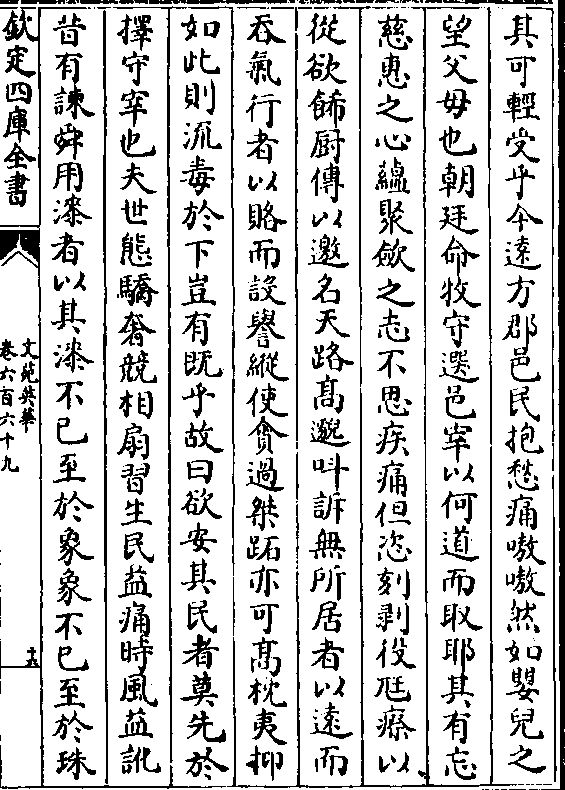 其可輕受乎今遠方郡邑民抱愁痛嗷嗷然如嬰兒之
望父毋也朝廷命牧守選邑宰以何道而取耶其有忘
慈惠之心蘊聚斂之志不思疾痛但恣刻剥役尫瘵以
從欲餙厨傳以邀名天路髙邈呌訴無所居者以遠而
吞氣行者以賂而設譽縱使貪過桀跖亦可髙枕夷抑
如此則流毒於下豈有既乎故曰欲安其民者莫先於
擇守宰也夫世態驕奢競相扇習生民益痛時風益訛
昔有諫舜用漆者以其漆不已至於象象不已至於珠
欽定四庫全書
文苑英華
卷六百六十九